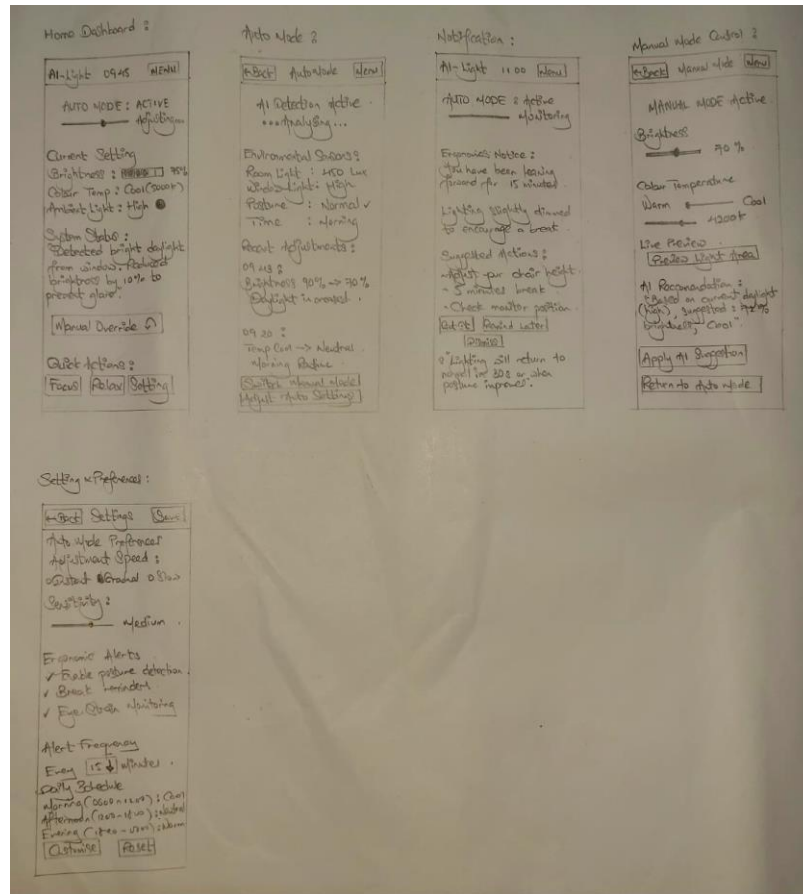 Home Dashboard :
AI-Light 09:45 MENU
AUTO MODE : ACTIVE
Adjusting...
Current Setting
Brightness : 75%
Colour Temp : Cool (5000K)
Ambient Light : High
System Status :
"Detected bright daylight
from window. Reduced
brightness by 10% to
prevent glare".
Manual Override
Quick Actions :
Focus Relax Setting
Auto Mode :
←Back Auto Mode Menu
AI Detection Active
...Analysing...
Environmental Sensors :
Room Light : 450 Lux
Window Light : High
Posture : Normal ✓
Time : Morning
Recent Adjustments :
09:43 :
Brightness 90% → 70%
Daylight increased.
09:20 :
Temp Cool → Neutral
Morning Routine
Switch Manual Mode
Adjust Auto Settings
Notification :
AI-Light 11:00 Menu
AUTO MODE : Active
Monitoring
Ergonomics Notice :
You have been leaning
forward for 15 minutes.
Lighting slightly dimmed
to encourage a break.
Suggested Actions :
-Adjust your chair height
- 5 minutes break
-Check monitor position.
Remind Later
Dismiss
Lighting will return to
normal in 30s or when
posture improves.
Manual Mode Control :
←Back Manual Mode Menu
MANUAL MODE Active
Brightness
70 %
Colour Temperature
Warm Cool
4200K
Live Preview
Preview Light Area
AI Recommendation :
"Based on current daylight
(high), suggested :
brightness, Cool"
Apply AI Suggestion
Return to Auto Mode
Setting & Preferences :
←Back Settings Save
Auto Mode Preferences
Adjustment Speed :
Instant Gradual Slow
Sensitivity :
Medium
Ergonomic Alerts
✓ Enable posture detection
✓ Break reminders
✓ Eye Strain Monitoring
Alert Frequency
Every 15 ↓ Minutes
Daily Schedule
Morning (0600-1200) : Cool
Afternoon (1200-1800) : Neutral
Evening : Warm
Customise Reset